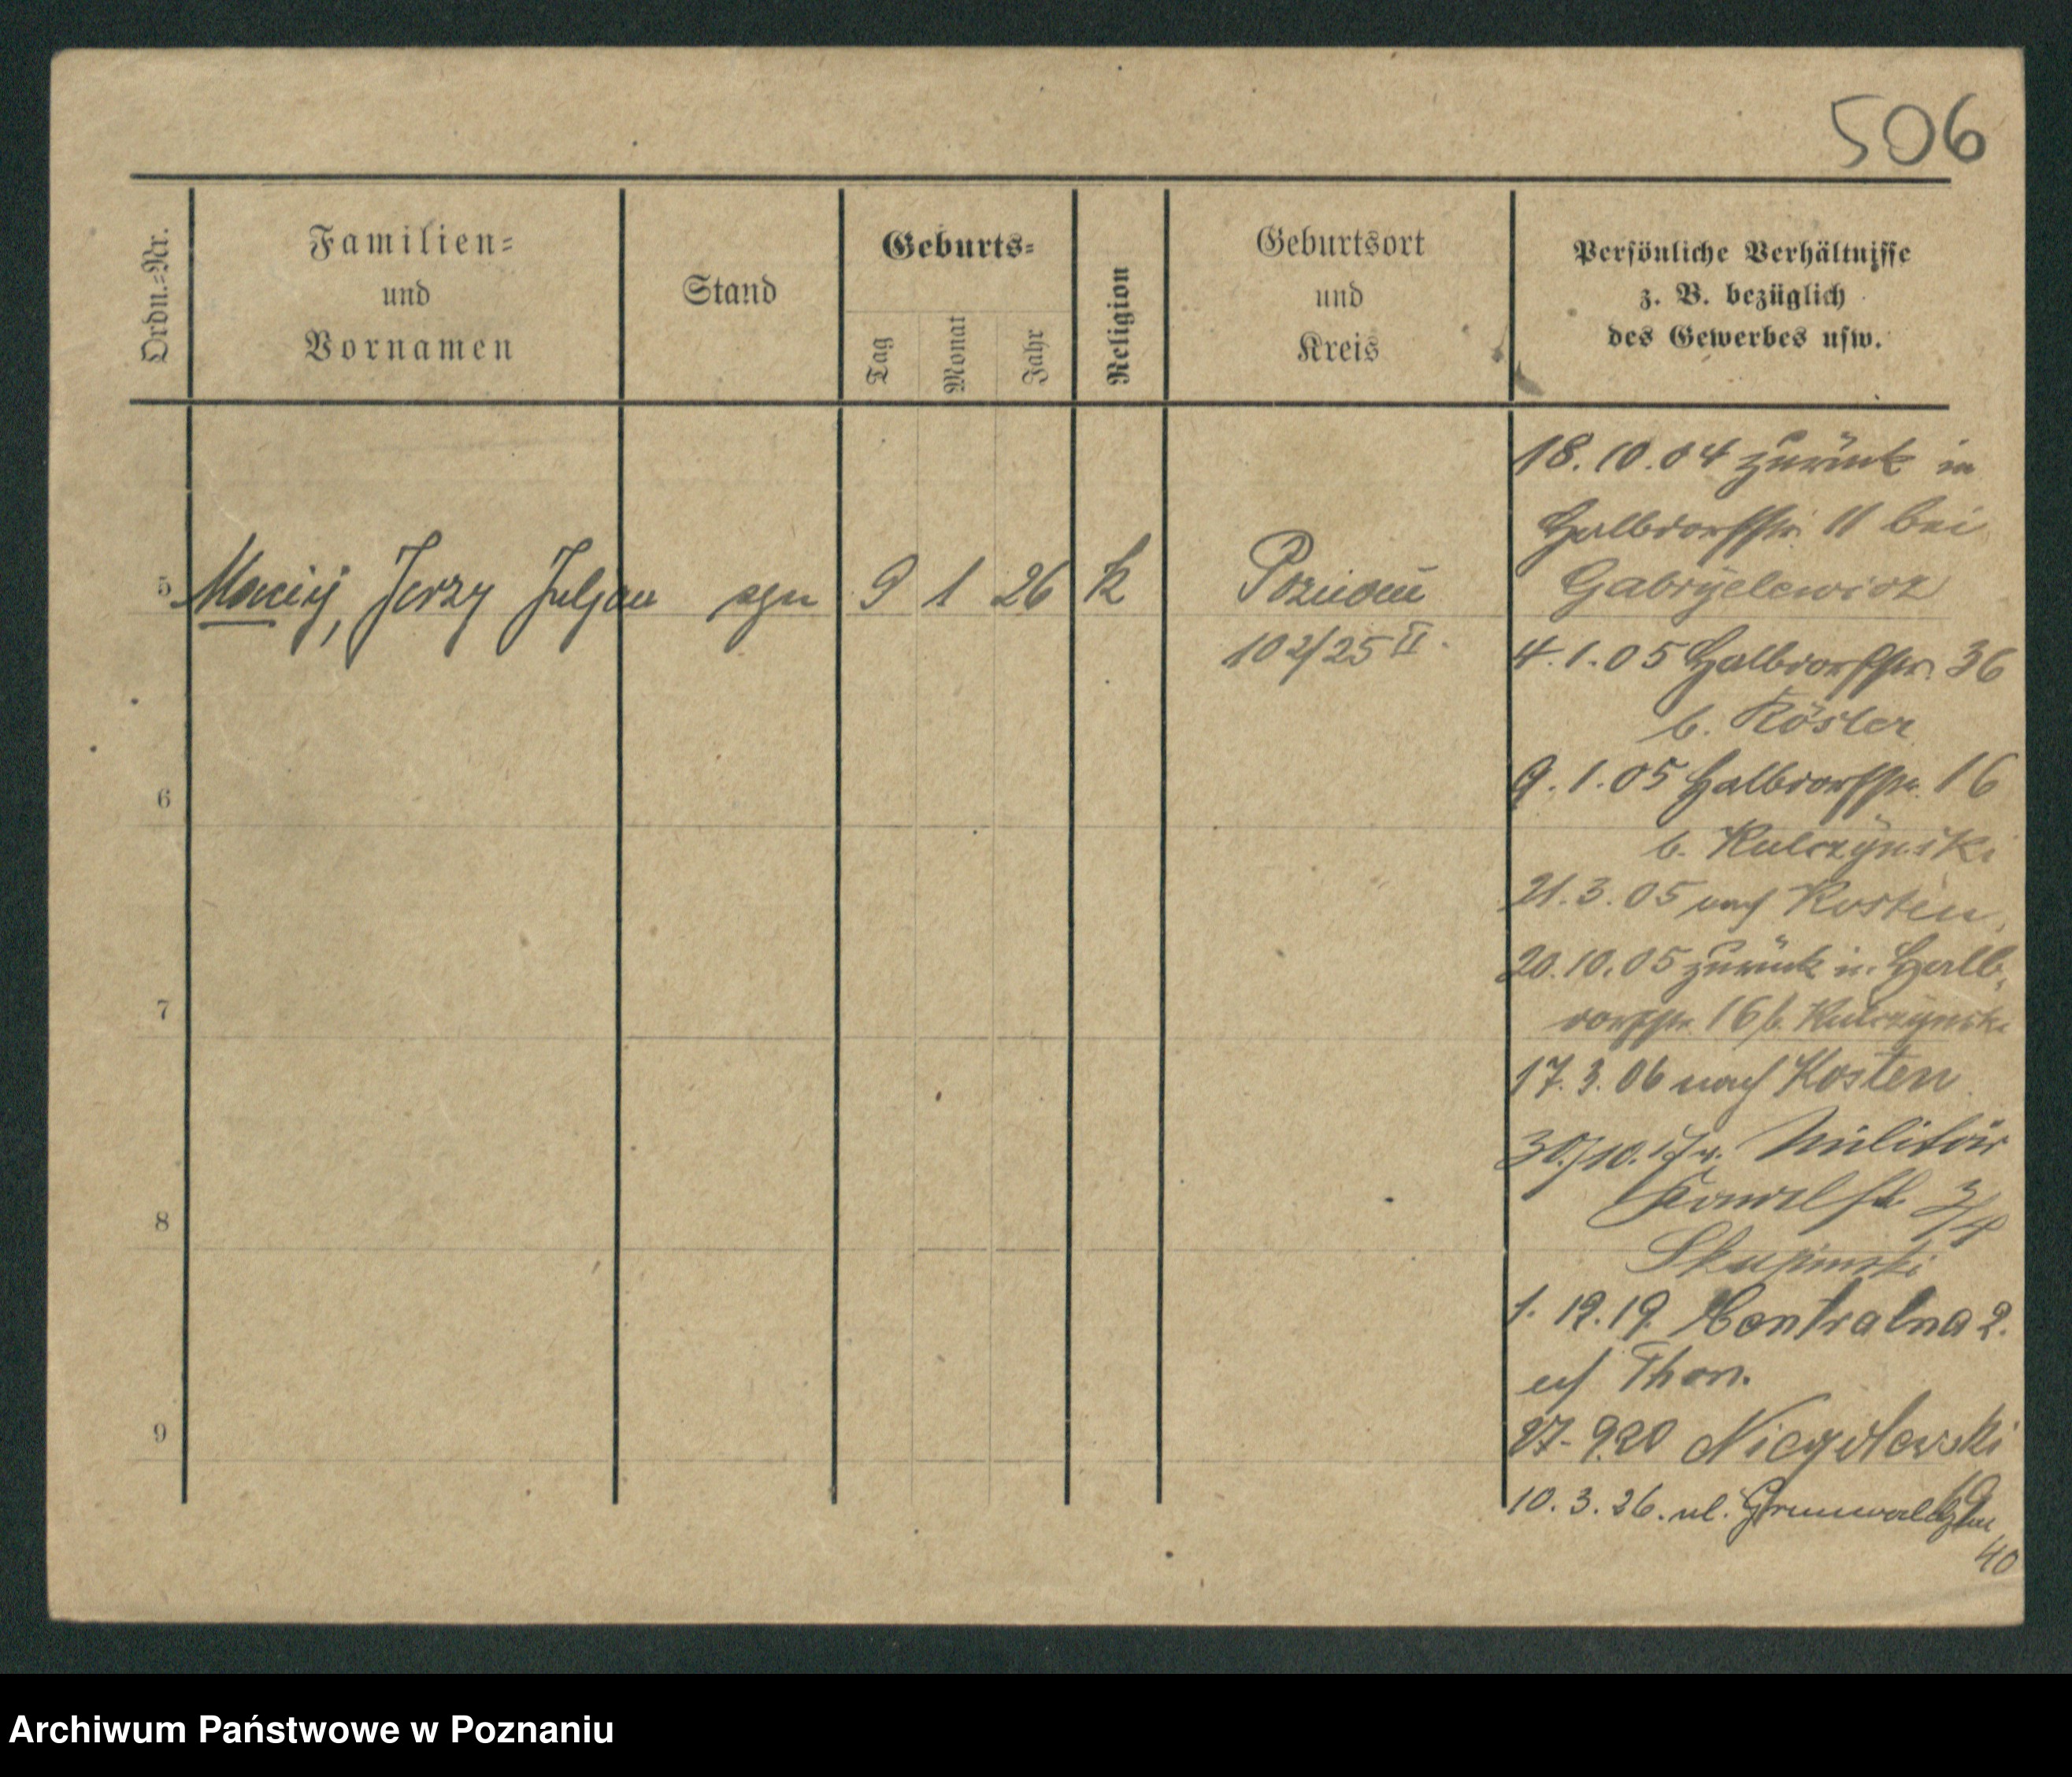 506
Ordn.-Nr.
Familien-
und
Vornamen
Stand
Geburts-
Tag
Monat
Jahr
Religion
Geburtsort
und
Kreis
Persönliche Verhältnisse
z. B. bezüglich
des Gewerbes usw.
5 Maciej, Jerzy Juljan syn 9 1 26 k Poznań
102/25 II.
6
7
8
9
18.10.04 zurück in
Halbdorfstr. 11 bei
Gabryelewicz
4.1.05 Halbdorfstr. 36
b. Rösler
9.1.05 Halbdorfstr. 16
b. Kulczynski
21.3.05 nach Kosten
20.10.05 zurück in Halb-
dorfstr. 16 b. Kulczynski
17.3.06 nach Kosten
30/10. v. Militär
3/4
Skupinski
1. 12.19. Centralna 2.
Thon.
27.9.20 Niegolewski
10.3.26. ul. Grunwaldzka
40
Archiwum Państwowe w Poznaniu